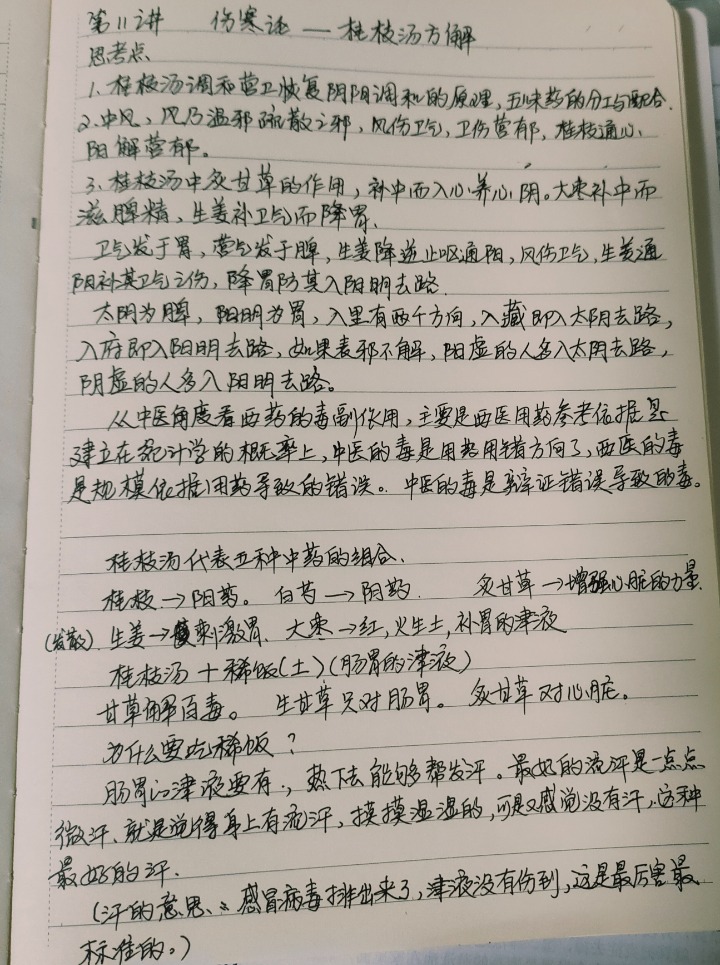 第11讲 伤寒论 — 桂枝汤方解
思考点
1、桂枝汤调和营卫恢复阴阳调和的原理,五味药的分工与配合.
2、中风、风乃温邪疏散之邪,风伤卫气,卫伤营郁,桂枝通心
阳解营郁。
3、桂枝汤中炙甘草的作用,补中而入心养心阴。大枣补中而
滋脾精、生姜补卫气而降胃、
卫气发于胃,营气发于脾,生姜降逆止呕通阳,风伤卫气,生姜通
阴补其卫气之伤,降胃防其入阳明去路.
太阴为脾,阳明为胃,入里有两个方向,入藏即入太阴去路,
入府即入阳明去路,如果表邪不解,阳虚的人多入太阴去路,
阴虚的人多入阳明去路。
从中医角度看西药的毒副作用,主要是西医用药参考依据是
建立在统计学的概率上,中医的毒是用药用错方向了,西医的毒
是规模依据用药导致的错误。中医的毒是辩证错误导致的毒。
桂枝汤代表五种中药的组合.
桂枝→阳药。 白芍→阴药. 炙甘草→增强心脏的力量.
(发散) 生姜→刺激胃、大枣→红,火生土,补胃的津液
桂枝汤+稀饭(土)(肠胃的津液)
甘草解百毒。 生甘草只对肠胃。 炙甘草对心脏。
为什么要吃稀饭?
肠胃的津液要有,热下去能够帮发汗。最好的流汗是一点点
微汗、就是觉得身上有流汗,摸摸湿湿的,可是又感觉没有汗,这种
最好的汗.
(汗的意思、感冒病毒排出来了,津液没有伤到,这是最厉害最
标准的。)